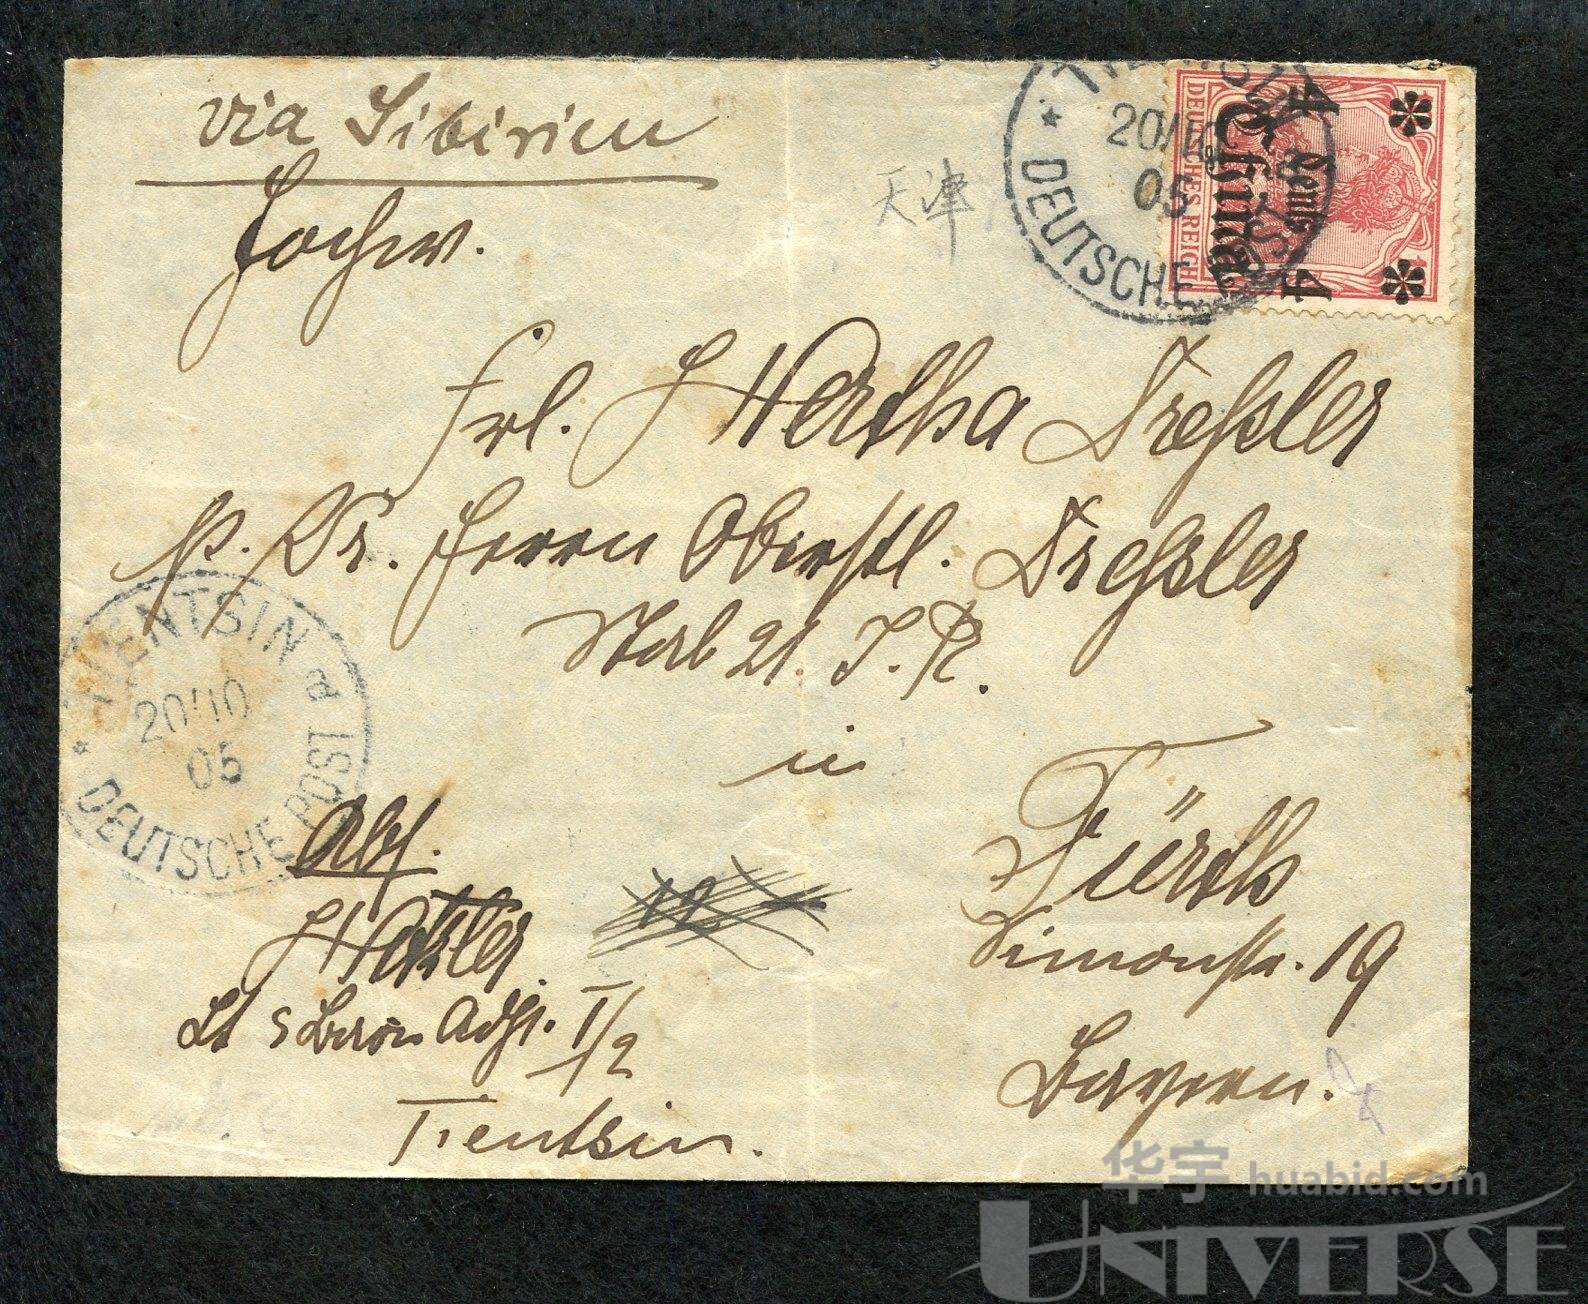 via Sibirien
Hochw.
天津
TIENTSIN
20/10
05
DEUTSCHE POST
DEUTSCHES REICH
4 Cents 4
China
Frl. Hertha Dreßler
p. Adr. Herrn Oberstl. Dreßler
Stab 21. J. R.
in
Fürth
Simonstr. 19
Bayern.
TIENTSIN a
20/10
05
DEUTSCHE POST
Abs.
12
Lt Adj. I/2
Tientsin.
华宇 huabid.com
UNIVERSE